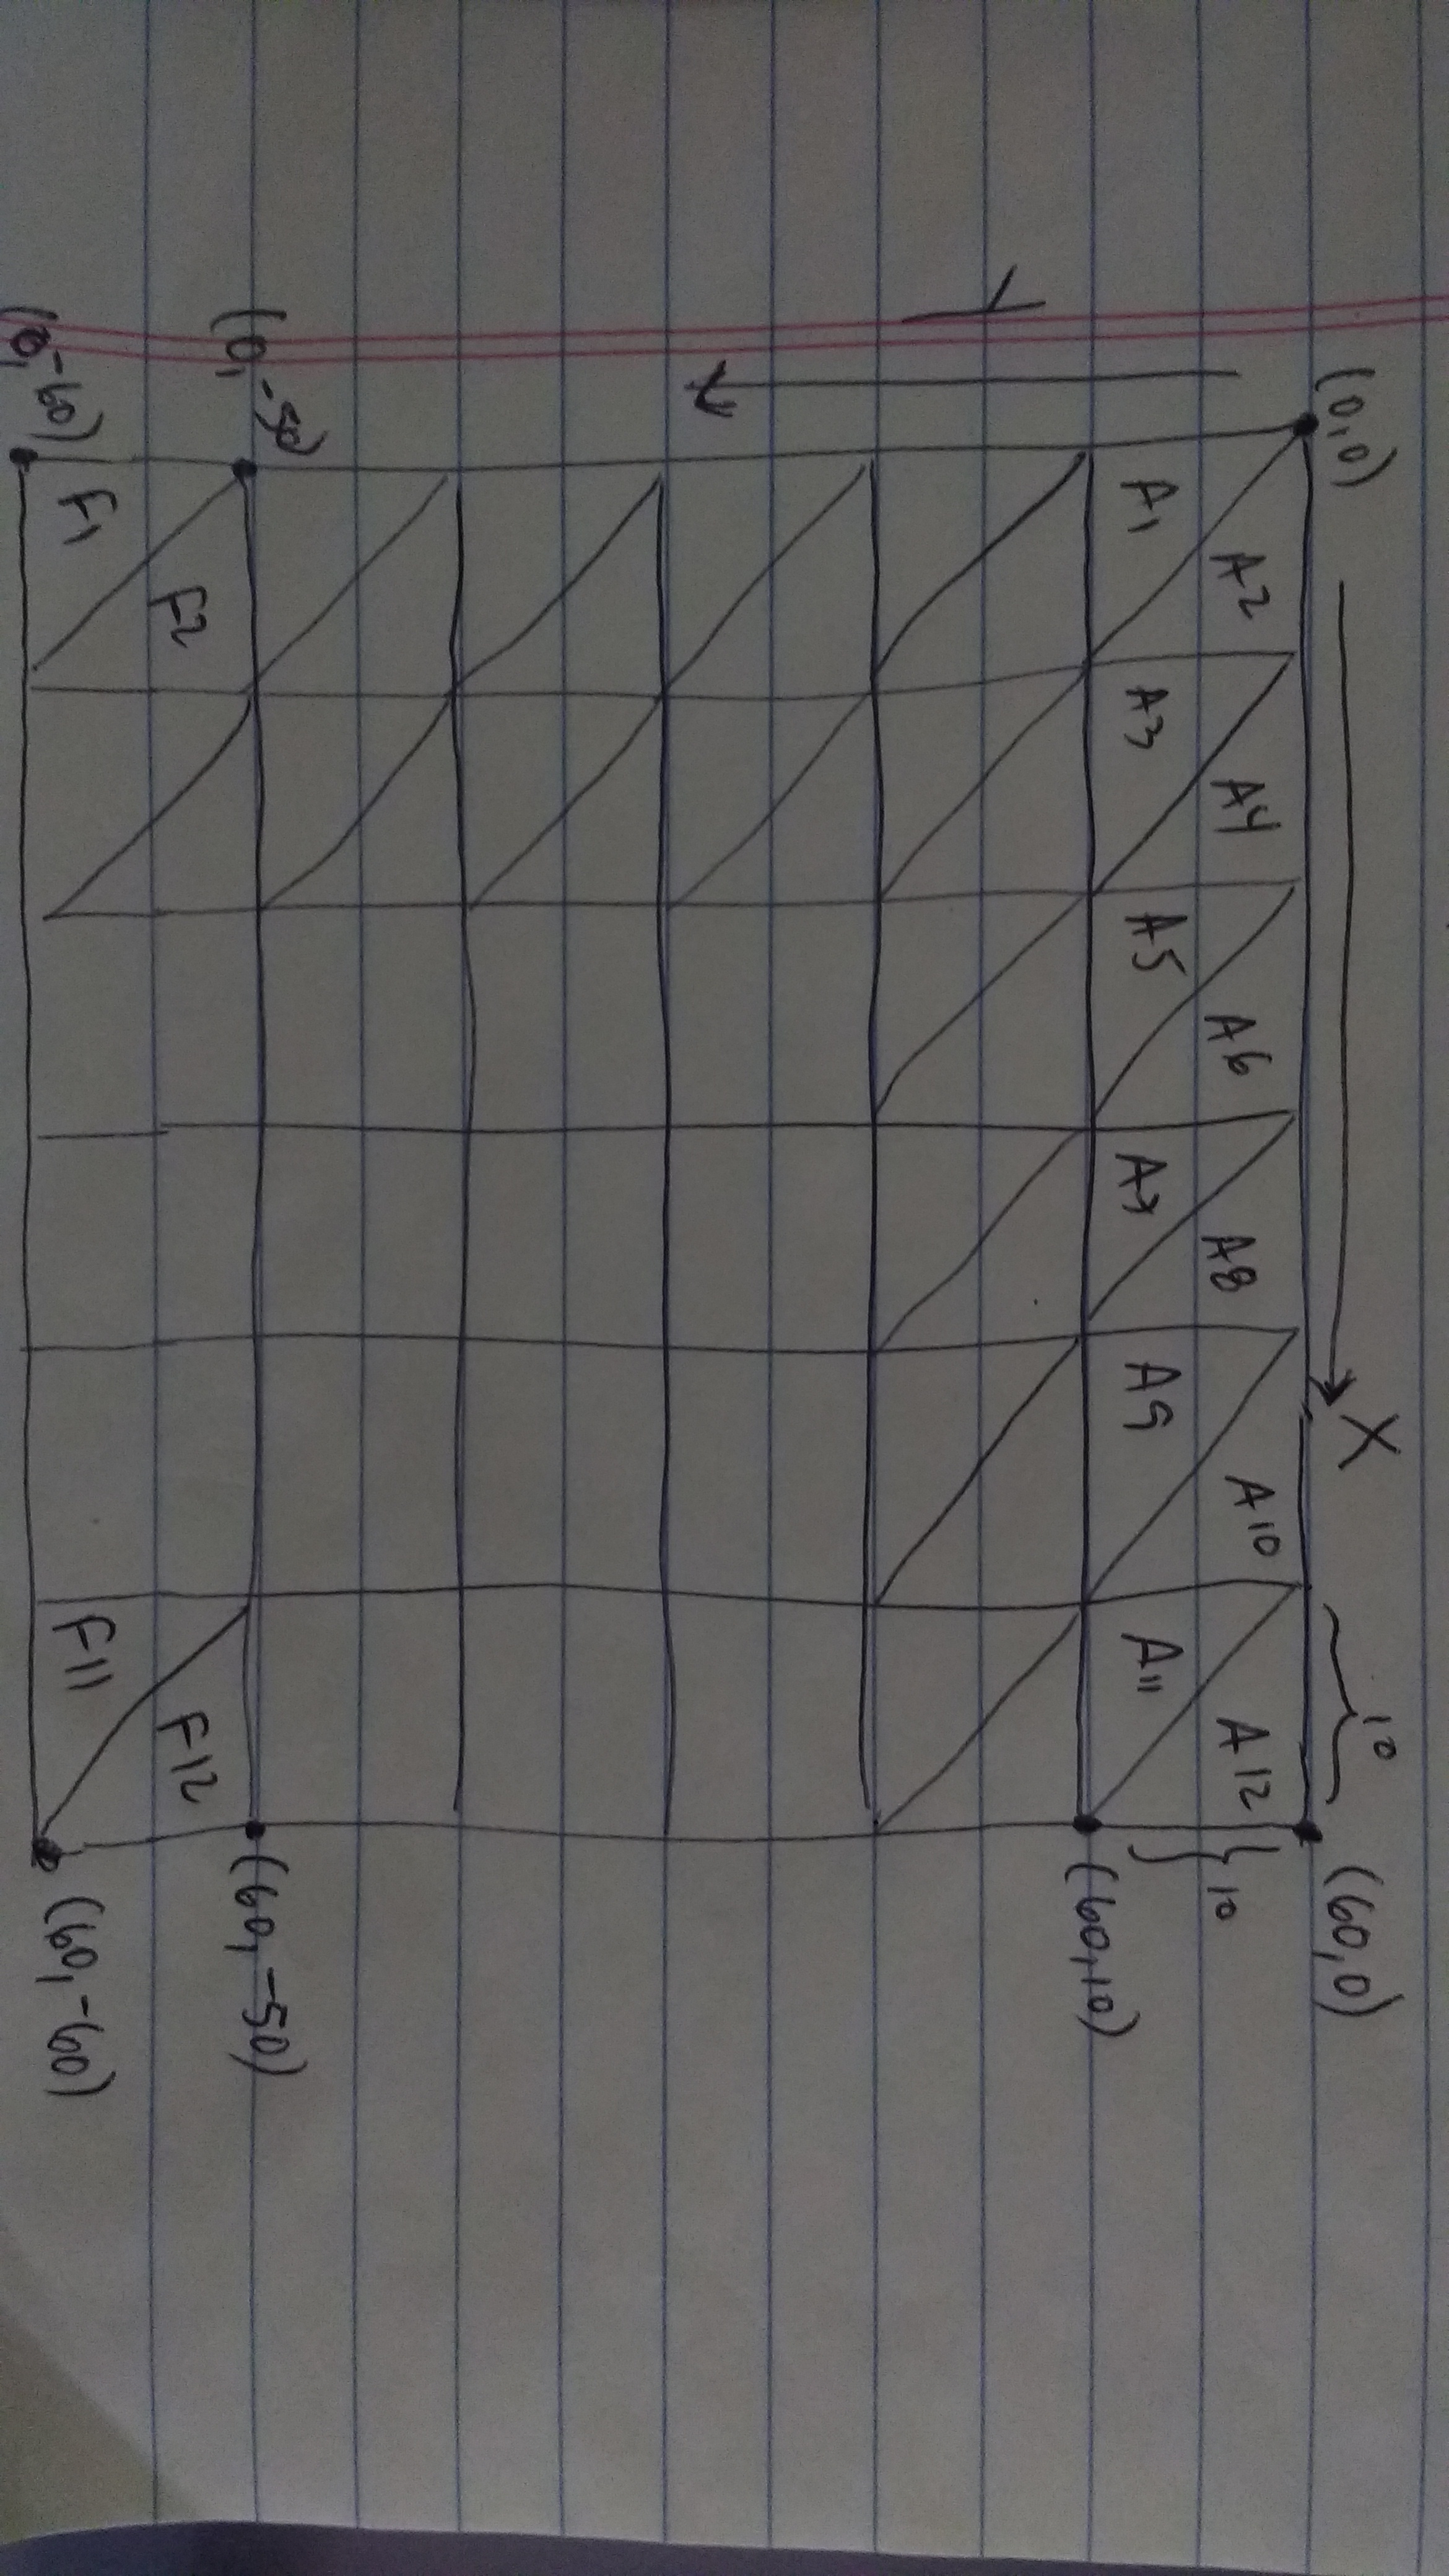 (0,0) X 10 (60,0)
A2 A4 A6 A8 A10 A12 10
A1 A3 A5 A7 A9 A11
(60,10)
Y
(0,-50) (60,-50)
F2 F12
F1 F11
(0,-60) (60,-60)